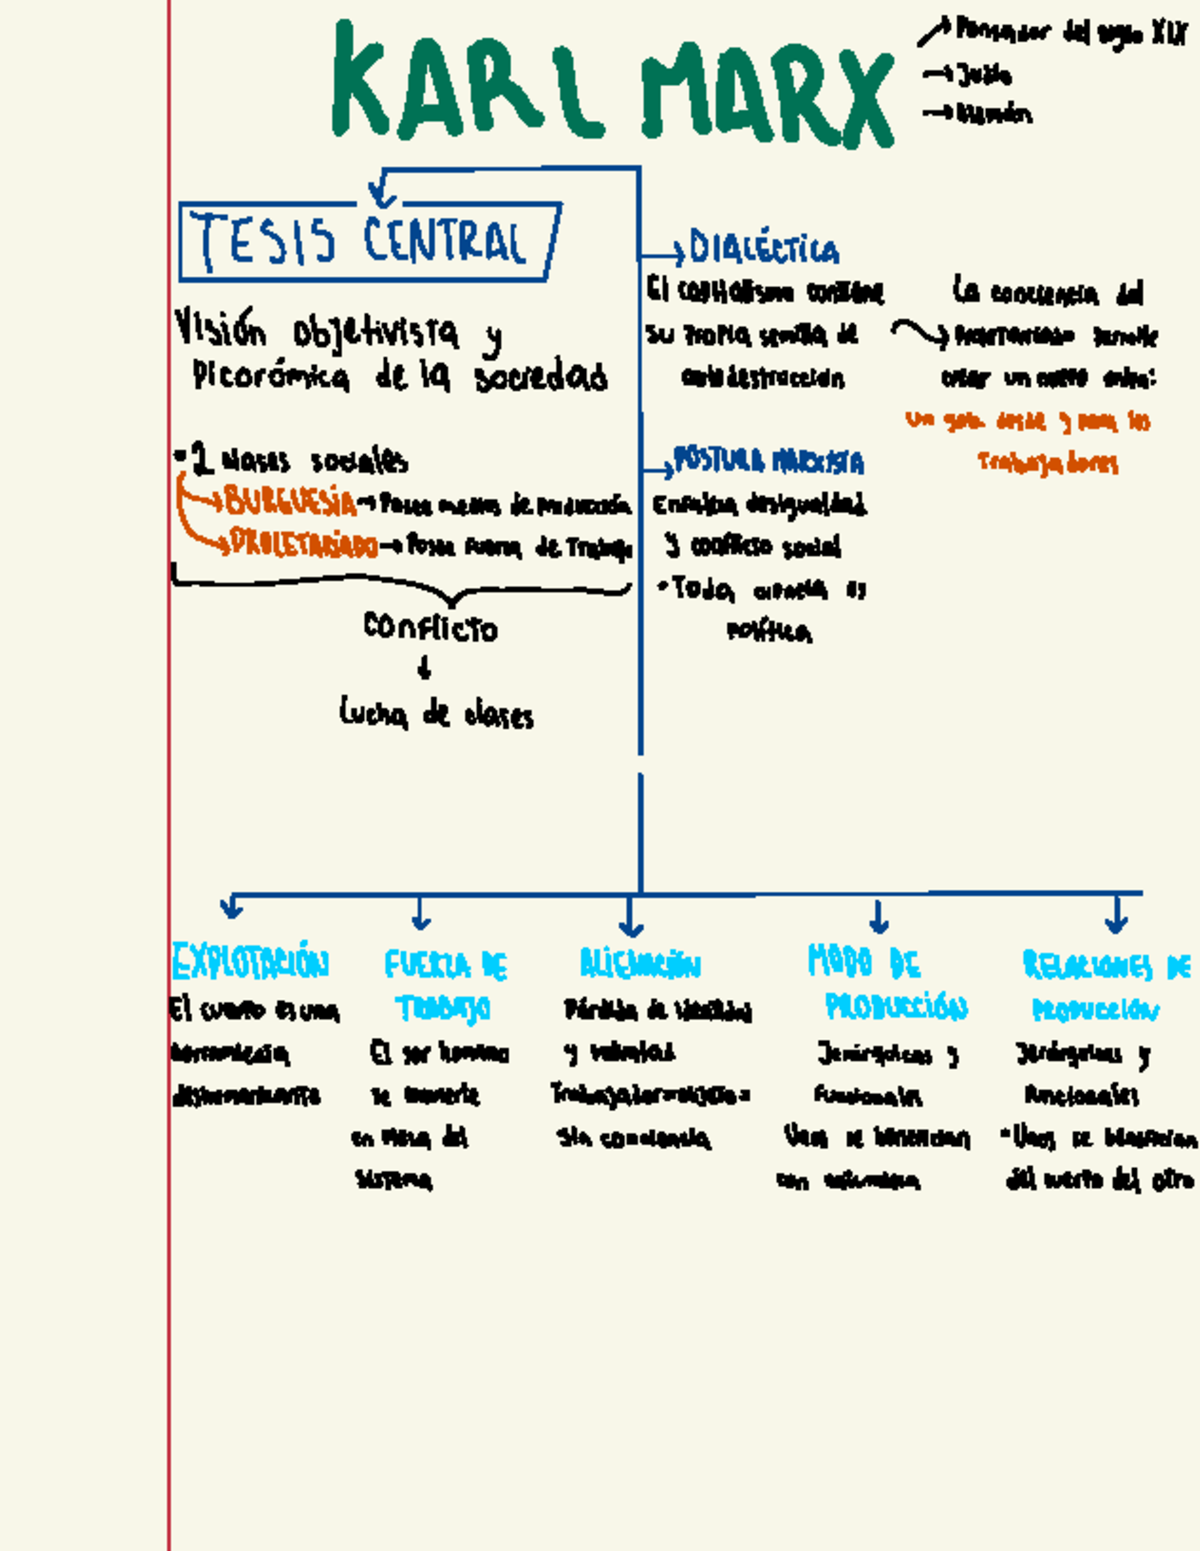 KARL MARX
Pensador del siglo XIX
Judío
Alemán
TESIS CENTRAL
Visión objetivista y
dicotómica de la sociedad
- 2 clases sociales
BURGUESÍA → Posee medios de producción
PROLETARIADO → Posee fuerza de trabajo
Conflicto
Lucha de clases
DIALÉCTICA
El capitalismo contiene
su propia semilla de
autodestrucción
La conciencia del
proletariado permite
crear un nuevo orden:
Un gob. desde y para los
trabajadores
POSTURA MARXISTA
Enfatiza desigualdad
y conflicto social
• Toda ciencia es
política
EXPLOTACIÓN
El cuerpo es una
herramienta
deshumanizante
FUERZA DE
TRABAJO
El ser humano
se convierte
en pieza del
sistema
ALIENACIÓN
Pérdida de identidad
y voluntad
Trabajador=objeto=
sin conciencia
MODO DE
PRODUCCIÓN
Jerárquicas y
funcionales
Unos se benefician
con
RELACIONES DE
PRODUCCIÓN
Jerárquicas y
funcionales
• Unos se benefician
del cuerpo del otro